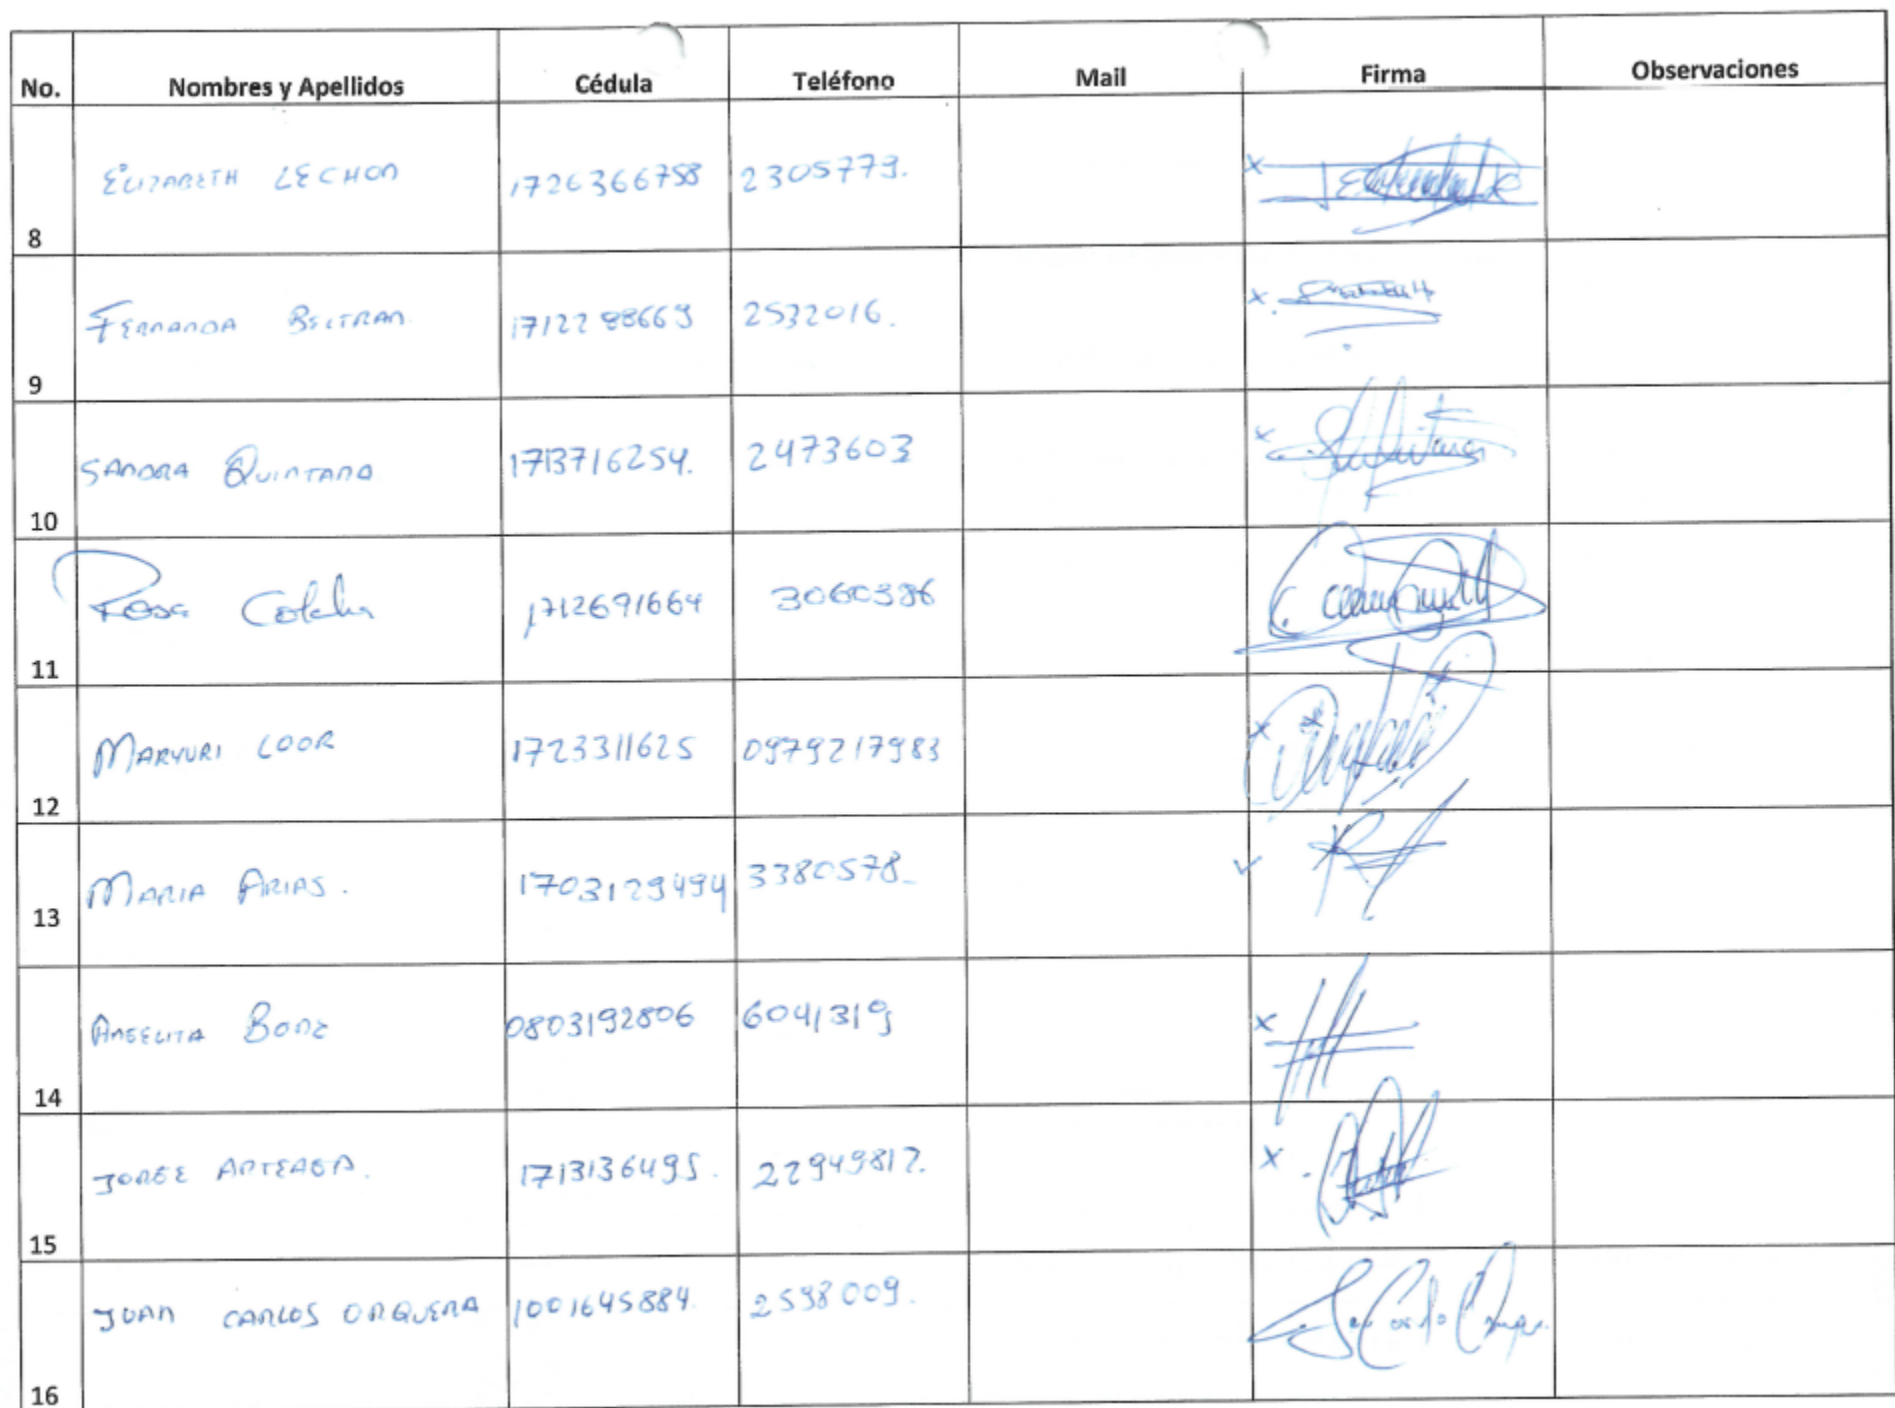 No. Nombres y Apellidos Cédula Teléfono Mail Firma Observaciones
8 ELIZABETH LECHON 1726366758 2305779.
9 FERNANDA BELTRAN. 1712298669 2532016.
10 SANDRA QUINTANA 1713716254. 2473603
11 Rosa 1712691664 3060386
12 MARYURI LOOR 1723311625 0979217983
13 MARIA ARIAS. 1703129494 3380578_
14 ANGELITA BONE 0803192806 6041319
15 JORGE ARTEAGA. 1713136495. 22949812.
16 JUAN CARLOS ORQUERA 1001645884. 2598009.